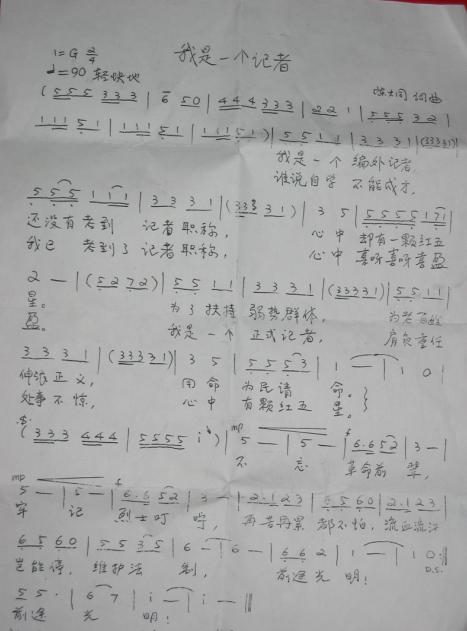 我是一个记者
1=G 2/4
♩=90 轻快地
词曲
(555 333 | 6 50 | 444 333 | 22 1 | 555 32 |
111 51 | 111 51 | 111 51) | 55 11 | 333 1 | (33331) |
我是一个 编外记者,
谁说自学 不能成才,
555 111 | 333 1 | (333 31) | 3 5 | 5555 171 |
还没有考到 记者职称, 心中 却有一颗红五
我已 考到了记者职称, 心中 喜呀喜呀喜盈
2 — | (5272) | 55 11 | 333 1 | (33331) | 55 11 |
星。 为了扶持 弱势群体, 为老百姓
盈。 我是一个 正式记者, 肩负重任
333 1 | (33331) | 3 5 | 555 3 | 1 — | 1 0 |
伸张正义, 用命 为民请 命。
处事不惊, 心中 有颗红五 星。
(333 444 | 5555 i) | mp 5 — | 5 — | f 6.652 | 3 — |
不 忘 革命前辈,
mp 5 — | 5 — | f 6.652 | 3 — | 2.123 | 5560 | 2.123 |
牢 记 烈士叮咛, 再苦再累 都不怕, 流血流汗
6560 | 5535 | 6 — | 6 — | 662 | 1 — | 1 0 :‖
岂能停, 维护法 制, 前途光 明! D.S.
55· | 67 | i — | i — ‖
前途 光 明!